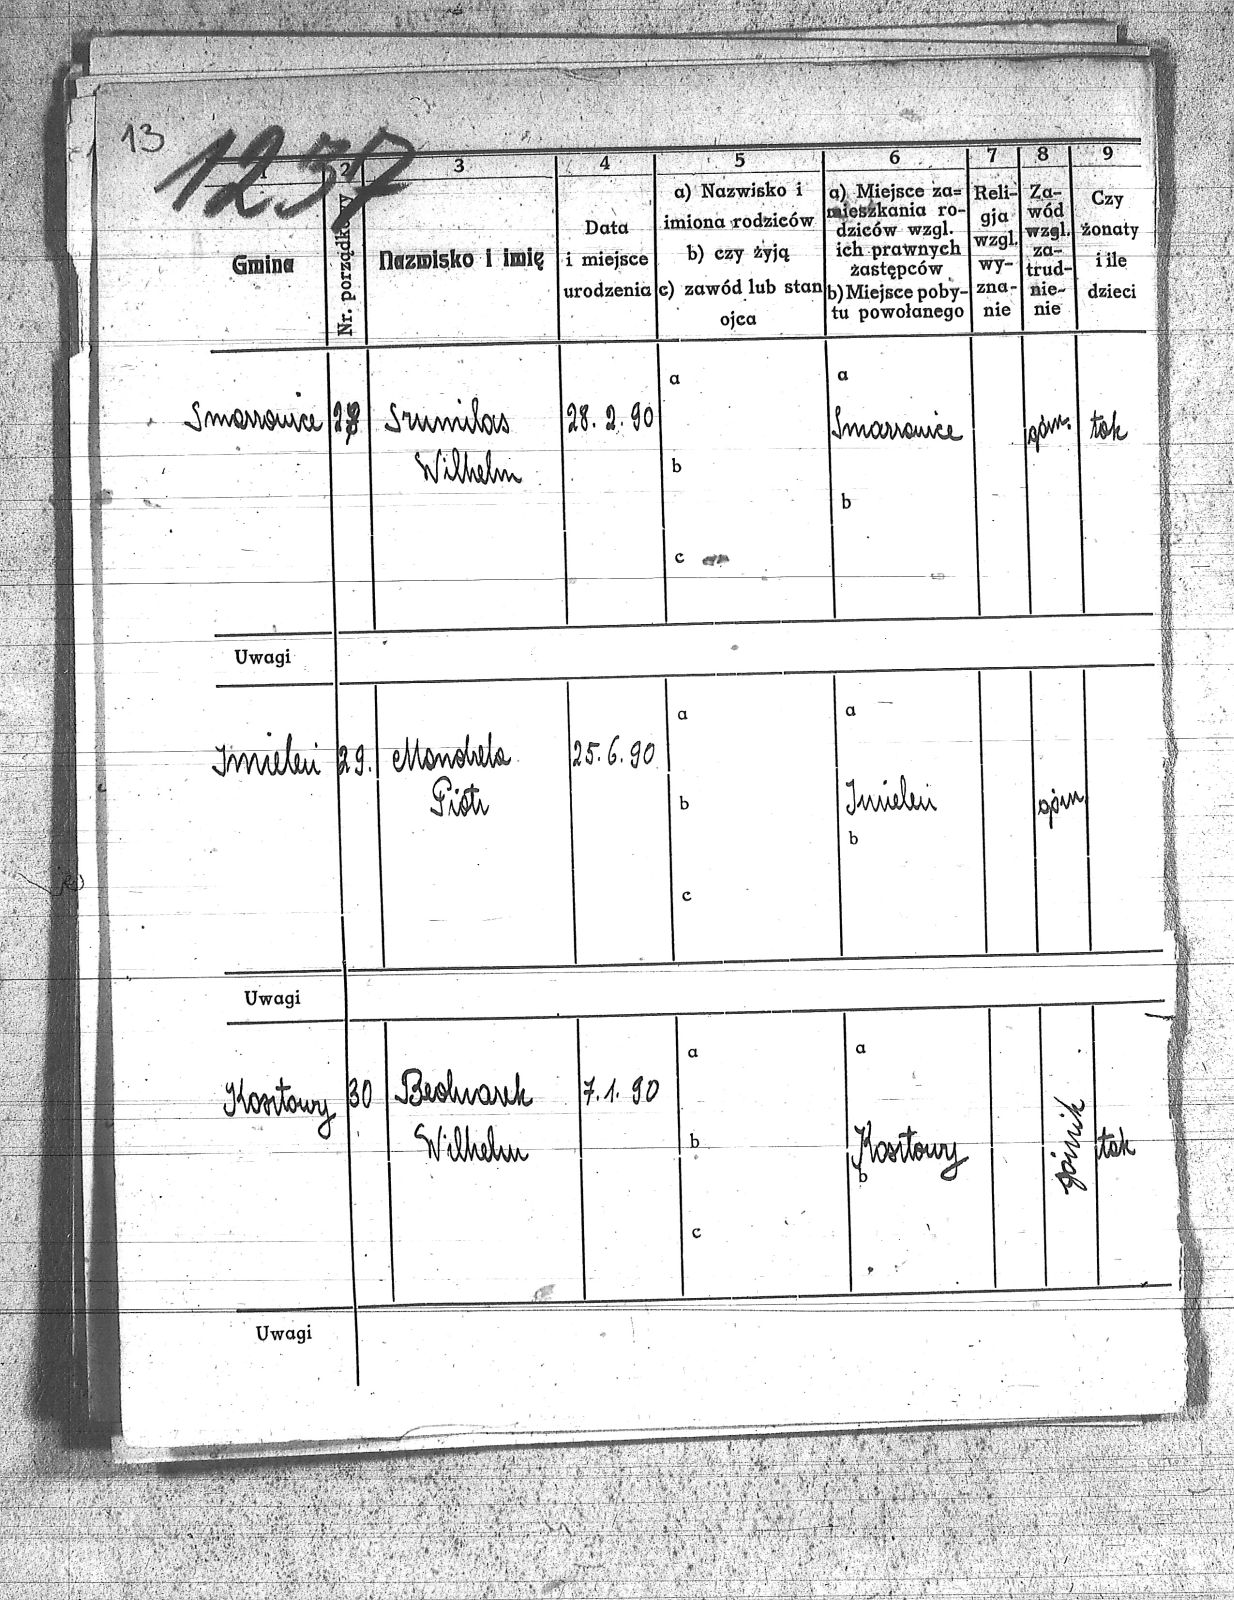 13
1237
1 2 3 4 5 6 7 8 9
Gmina
Nr. porządkowy
Nazwisko i imię
Data
i miejsce
urodzenia
a) Nazwisko i
imiona rodziców
b) czy żyją
c) zawód lub stan
ojca
a) Miejsce za=
mieszkania ro-
dziców wzgl.
ich prawnych
żastępców
b) Miejsce poby-
tu powołanego
Reli-
gja
wzgl.
wy-
zna-
nie
Za-
wód
wzgl.
za-
trud-
nie-
nie
Czy
żonaty
i ile
dzieci
a a
Smarzowice 28 Szumilas 28. 2. 90 Smarzowice górn. tak
Wilhelm
b
b
c
Uwagi
a a
Imieleń 29. Mandrela 25. 6. 90
Piotr b Imieleń górn
b
c
Uwagi
a a
Kosztowy 30 Bednarek 7. 1. 90
Wilhelm b Kosztowy górnik tak
b
c
Uwagi